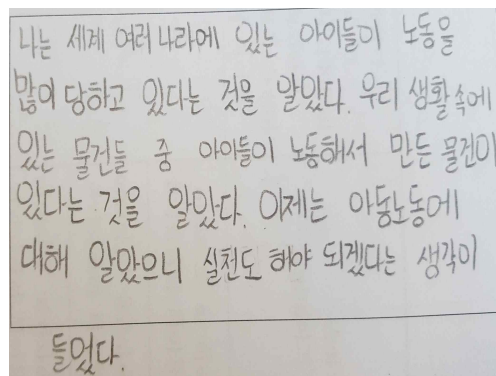 나는 세계 여러 나라에 있는 아이들이 노동을
많이 당하고 있다는 것을 알았다. 우리 생활속에
있는 물건들 중 아이들이 노동해서 만든 물건이
있다는 것을 알았다. 이제는 아동노동에
대해 알았으니 실천도 해야 되겠다는 생각이
들었다.